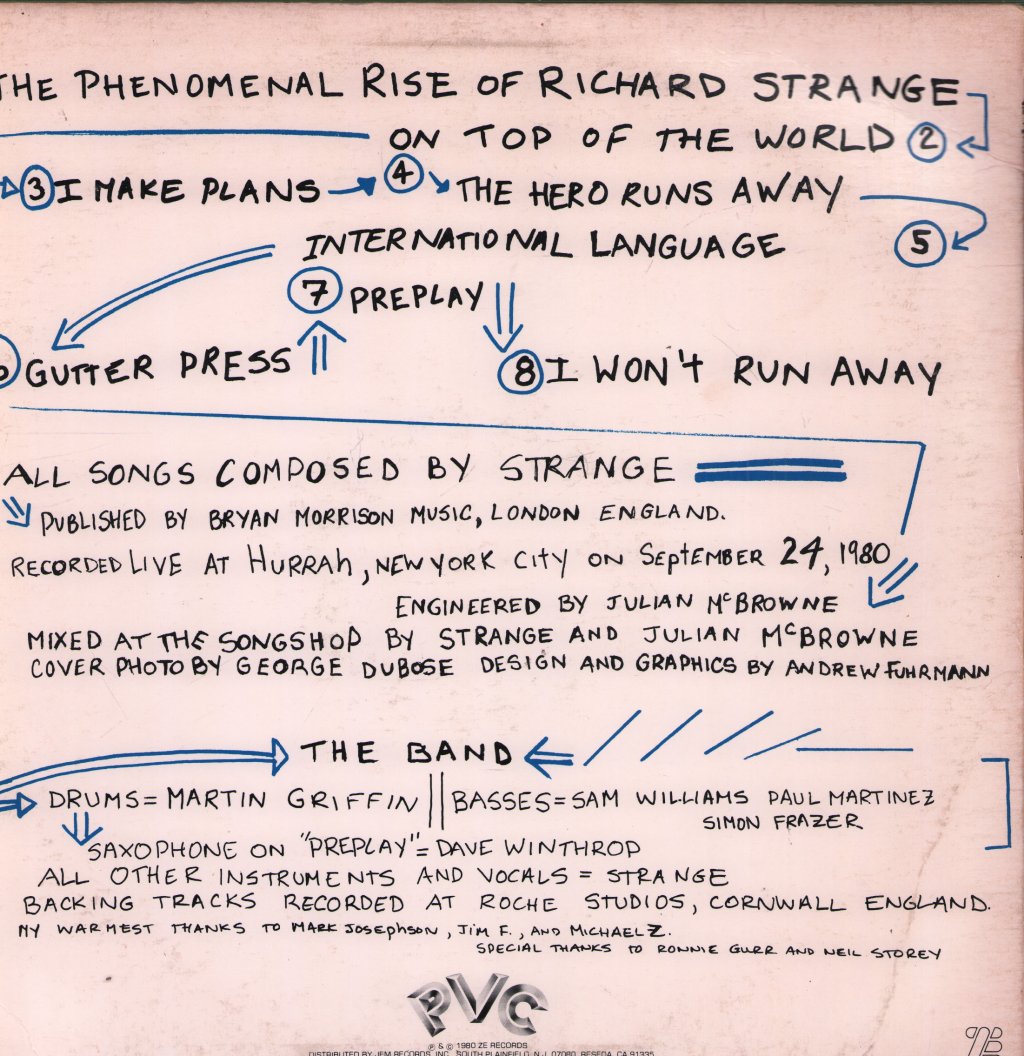 THE PHENOMENAL RISE OF RICHARD STRANGE
ON TOP OF THE WORLD 2
3 I MAKE PLANS 4 THE HERO RUNS AWAY
INTERNATIONAL LANGUAGE 5
7 PREPLAY
GUTTER PRESS
8 I WON'T RUN AWAY
ALL SONGS COMPOSED BY STRANGE
PUBLISHED BY BRYAN MORRISON MUSIC, LONDON ENGLAND.
RECORDED LIVE AT HURRAH, NEW YORK CITY ON SEPTEMBER 24, 1980
ENGINEERED BY JULIAN McBROWNE
MIXED AT THE SONGSHOP BY STRANGE AND JULIAN McBROWNE
COVER PHOTO BY GEORGE DUBOSE DESIGN AND GRAPHICS BY ANDREW FUHRMANN
THE BAND
DRUMS = MARTIN GRIFFIN || BASSES = SAM WILLIAMS PAUL MARTINEZ
SIMON FRAZER
SAXOPHONE ON "PREPLAY" = DAVE WINTHROP
ALL OTHER INSTRUMENTS AND VOCALS = STRANGE
BACKING TRACKS RECORDED AT ROCHE STUDIOS, CORNWALL ENGLAND.
MY WARMEST THANKS TO MARK JOSEPHSON, JIM F., AND MICHAEL Z.
SPECIAL THANKS TO RONNIE GURR AND NEIL STOREY
PVC
℗ & © 1980 ZE RECORDS
DISTRIBUTED BY JEM RECORDS, INC., SOUTH PLAINFIELD, N.J. 07080, RESEDA, CA 91335